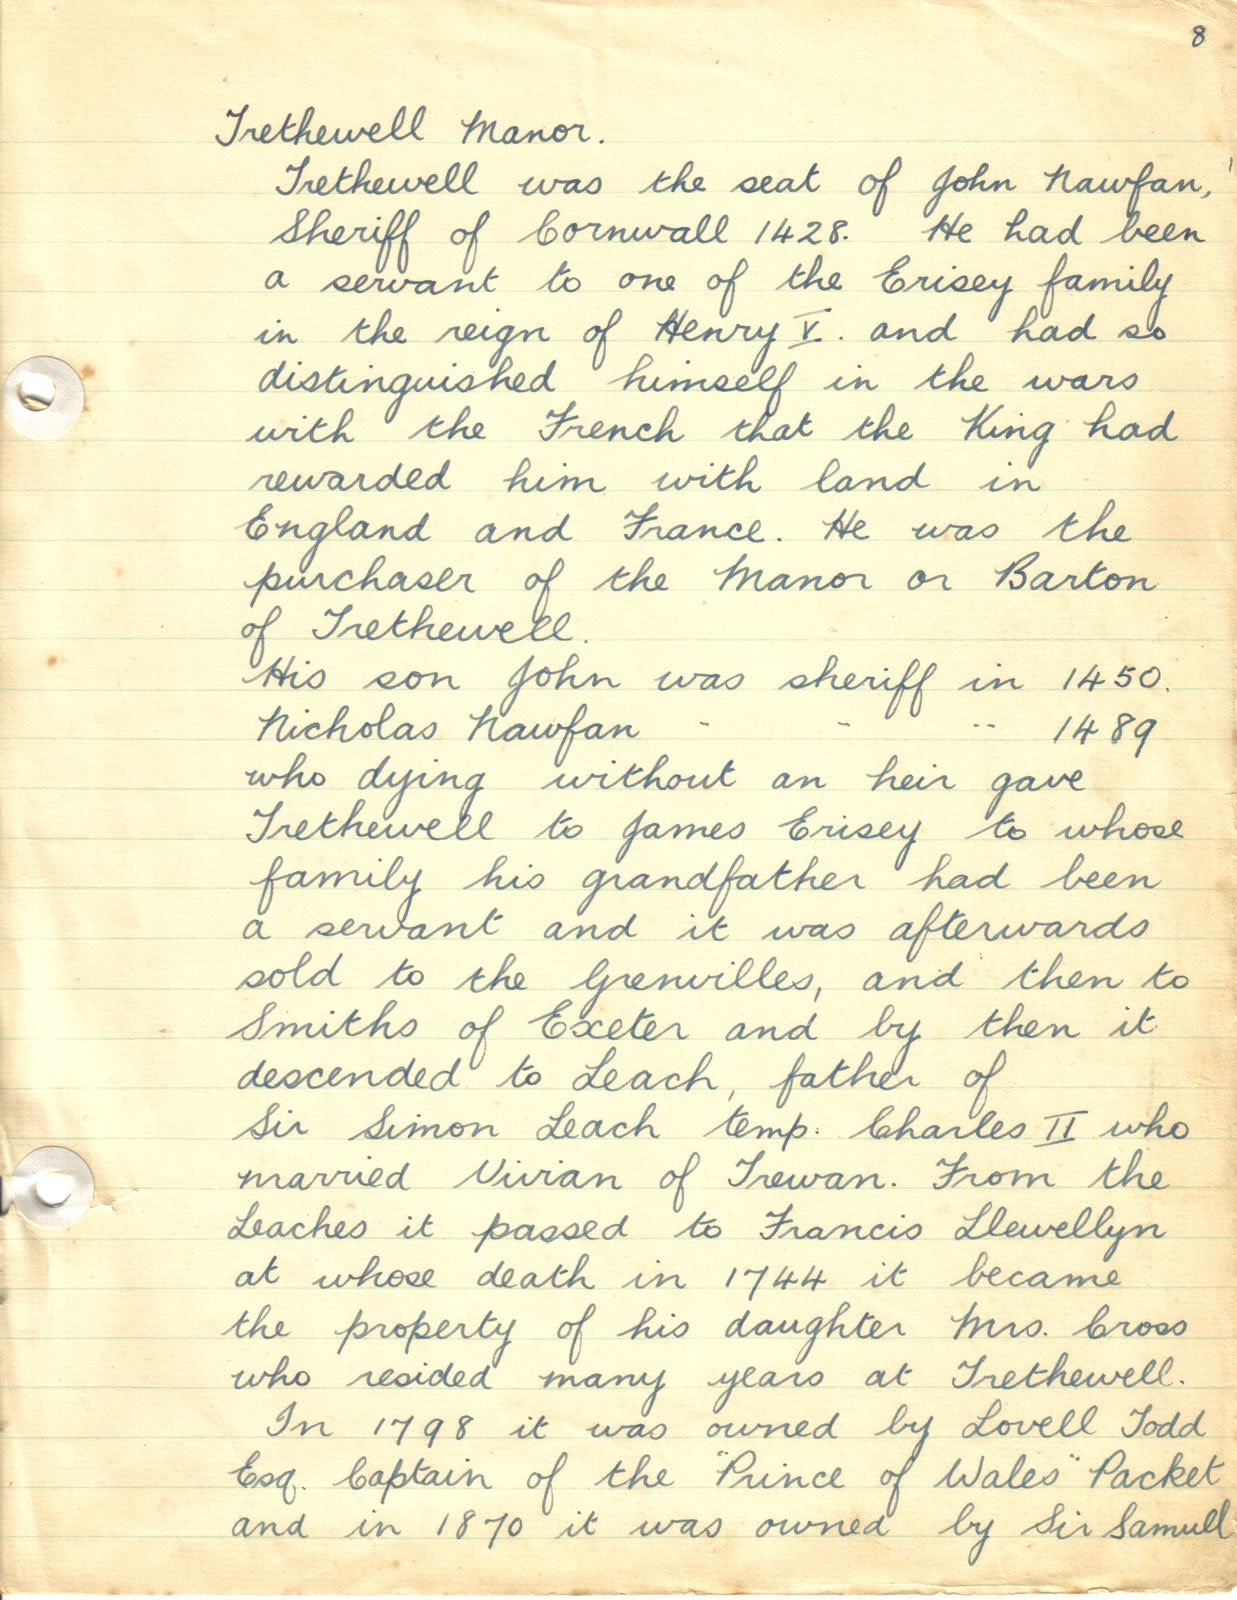 8
Trethewell Manor.
Trethewell was the seat of John Nawfan,
Sheriff of Cornwall 1428. He had been
a servant to one of the Erisey family
in the reign of Henry V. and had so
distinguished himself in the wars
with the French that the King had
rewarded him with land in
England and France. He was the
purchaser of the Manor or Barton
of Trethewell.
His son John was sheriff in 1450.
Nicholas Nawfan " " " 1489
who dying without an heir gave
Trethewell to James Erisey to whose
family his grandfather had been
a servant and it was afterwards
sold to the Grenvilles, and then to
Smiths of Exeter and by then it
descended to Leach, father of
Sir Simon Leach temp. Charles II who
married Vivian of Trewan. From the
Leaches it passed to Francis Llewellyn
at whose death in 1744 it became
the property of his daughter Mrs. Cross
who resided many years at Trethewell.
In 1798 it was owned by Lovell Todd
Esq. Captain of the "Prince of Wales" Packet
and in 1870 it was owned by Sir Samuel